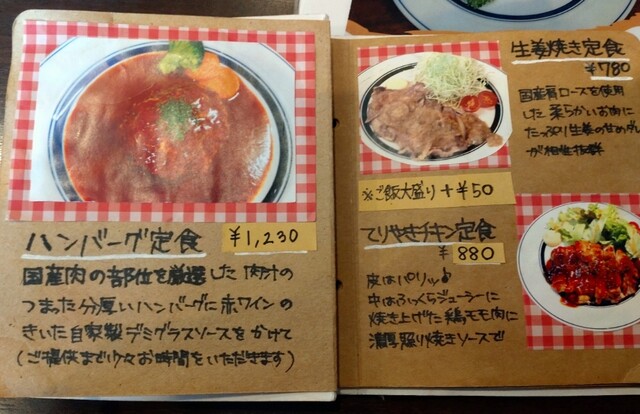 ハンバーグ定食
¥1,230
国産肉の部位を厳選した肉汁の
つまった分厚いハンバーグに赤ワインの
きいた自家製デミグラスソースをかけて
(ご提供まで少々お時間をいただきます)
生姜焼き定食
¥780
国産肩ロースを使用
した柔らかいお肉に
たっぷり生姜の甘めダレ
が相性抜群
※ご飯大盛り+¥50
てりやきチキン定食
¥880
皮はパリッ♪
中はふっくらジューシーに
焼き上げた鶏モモ肉に
濃厚照り焼きソースで